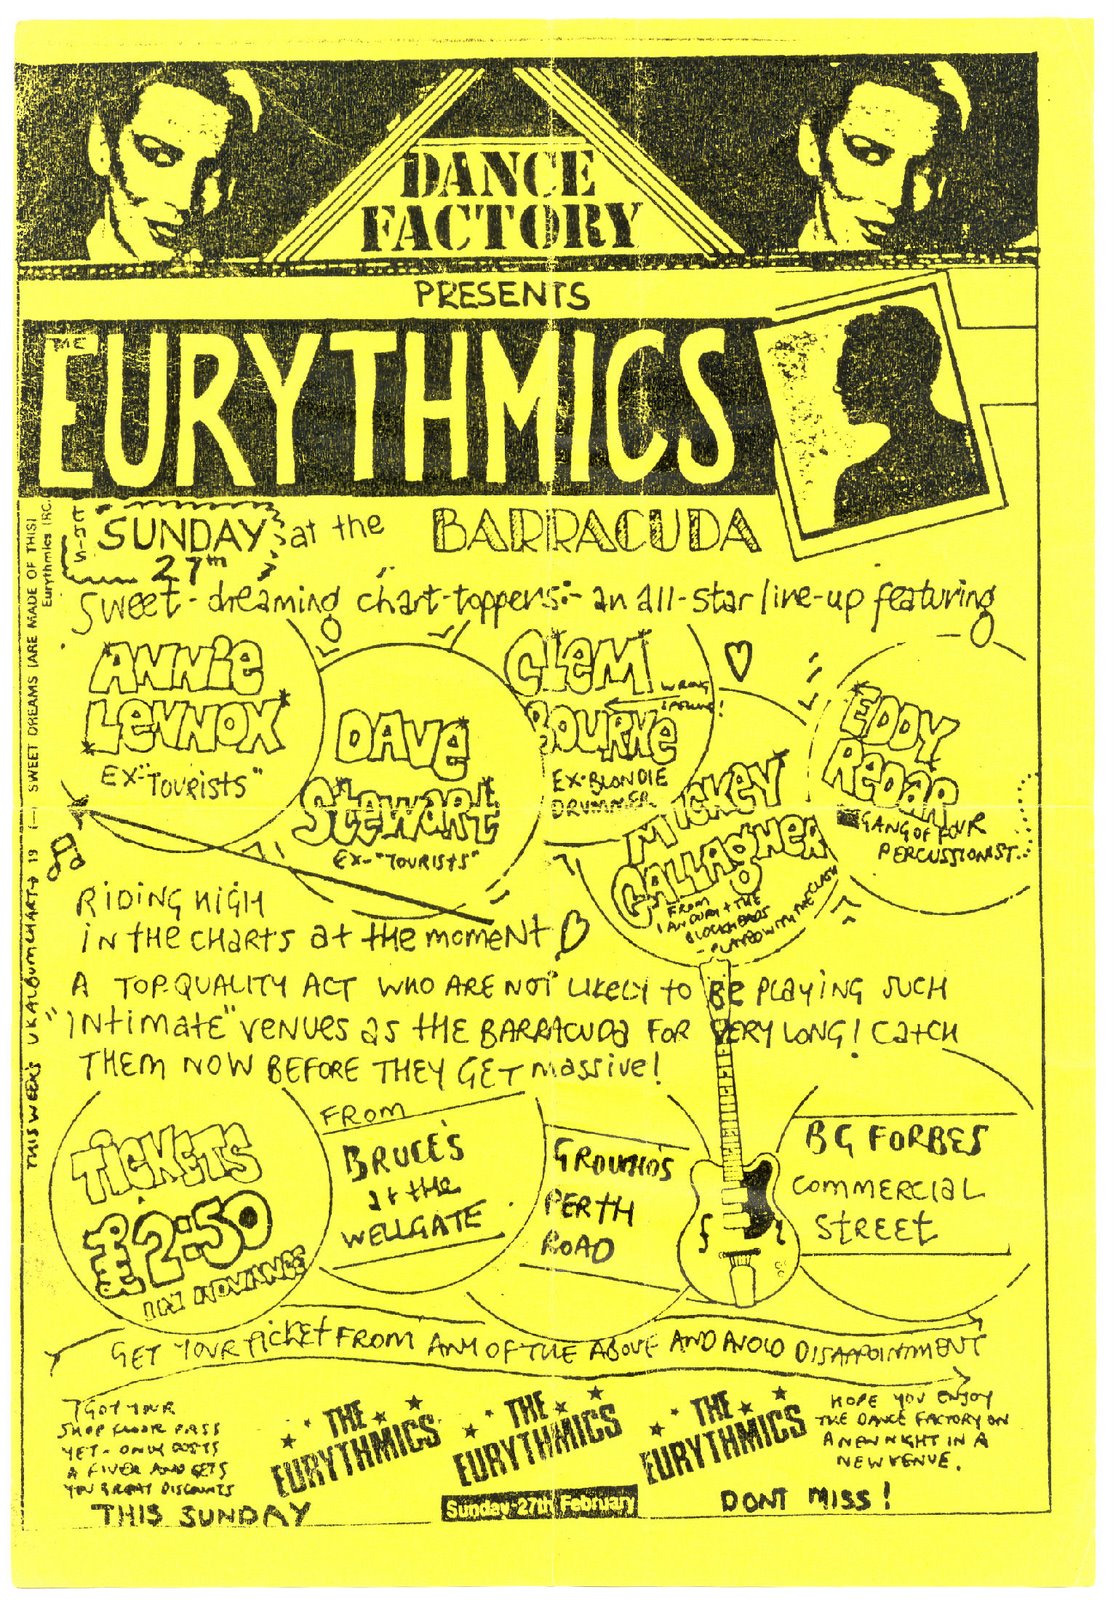 DANCE
FACTORY
PRESENTS
THE
EURYTHMICS
THIS
SUNDAY
27th
at the
BARRACUDA
Sweet-dreaming chart-toppers:- an all-star line-up featuring
ANNiE
LENNOX
EX-"TOURISTS"
DAVE
STEWART
EX-"TOURISTS"
CLEM
BOURKE
WRONG
SPELLING!
EX-BLONDIE
DRUMMER
MICKEY
GALLAGHER
FROM
IAN DURY + THE
BLOCKHEADS
- PLAYED WITH THE CLASH
EDDY
REDAR
GANG OF FOUR
PERCUSSIONIST...
RIDING HIGH
IN THE CHARTS at the moment
A TOP-QUALITY ACT WHO ARE NOT LIKELY to BE PLAYING SUCH
"INTIMATE" VENUES as the BARRACUDA FOR VERY LONG! CATCH
THEM NOW BEFORE THEY GET massive!
TICKETS
£2:50
IN ADVANCE
FROM
BRUCE'S
at the
WELLGATE
GROUCHO'S
PERTH
ROAD
BG FORBES
COMMERCIAL
STREET
GET YOUR TICKET FROM ANY OF THE ABOVE AND AVOID DISAPPOINTMENT
GOT YOUR
SHOP FLOOR PASS
YET - ONLY COSTS
A FIVER AND GETS
YOU GREAT DISCOUNTS
THIS SUNDAY
THE
EURYTHMICS
THE
EURYTHMICS
THE
EURYTHMICS
Sunday 27th February
HOPE YOU ENJOY
THE DANCE FACTORY ON
A NEW NIGHT IN A
NEW VENUE.
DONT MISS!
THIS WEEKS UK ALBUM CHART→ 19 (—) SWEET DREAMS (ARE MADE OF THIS)
Eurythmics (RC